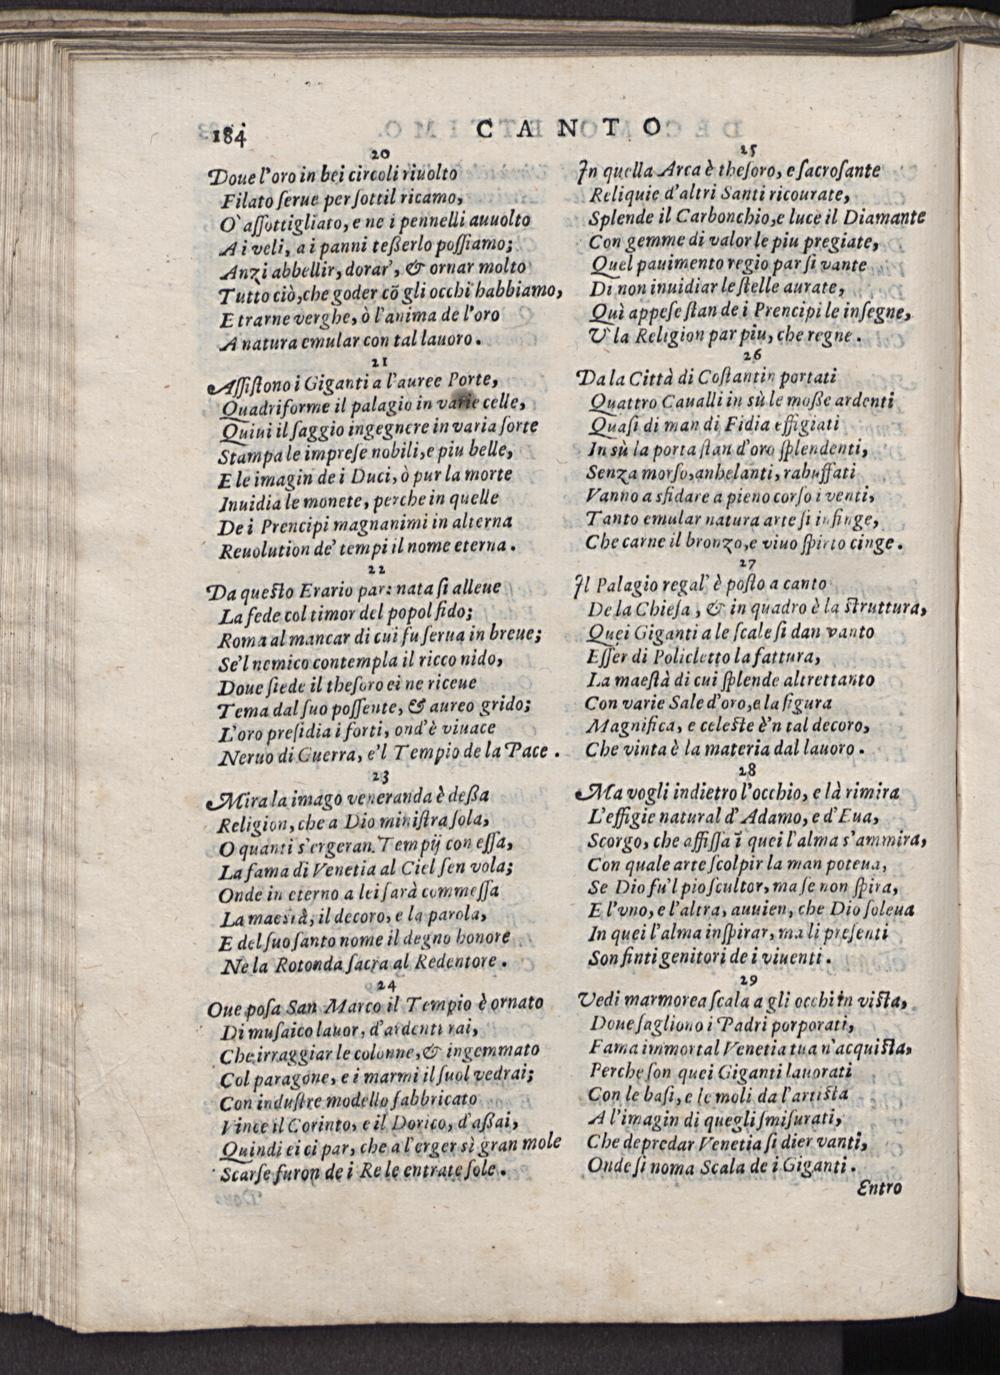 184
CANTO
20
Doue l'oro in bei circoli riuolto
Filato ſerue per ſottil ricamo,
O' aſſottigliato, e ne i pennelli auuolto
A i veli, a i panni teßerlo poſſiamo;
Anzi abbellir, dorar', & ornar molto
Tutto ciò, che goder cõ gli occhi habbiamo,
E trarne verghe, ò l'anima de l'oro
A natura emular con tal lauoro.
21
Aſſiſtono i Giganti a l'auree Porte,
Quadriforme il palagio in varie celle,
Quiui il ſaggio ingegnere in varia ſorte
Stampa le impreſe nobili, e piu belle,
E le imagin de i Duci, ò pur la morte
Inuidia le monete, perche in quelle
De i Prencipi magnanimi in alterna
Reuolution de' tempi il nome eterna.
22
Da queſto Erario par: nata ſi alleue
La fede col timor del popol fido;
Roma al mancar di cui fu ſerua in breue;
Se'l nemico contempla il ricco nido,
Doue ſiede il theſoro ei ne riceue
Tema dal ſuo poſſente, & aureo grido;
L'oro preſidia i forti, ond'è viuace
Neruo di Guerra, e'l Tempio de la Pace.
23
Mira la imago veneranda è deßa
Religion, che a Dio miniſtra ſola,
O quanti s'ergeran Tempij con eſſa,
La fama di Venetia al Ciel ſen vola;
Onde in eterno a lei ſarà commeſſa
La maestà, il decoro, e la parola,
E del ſuo ſanto nome il degno honore
Ne la Rotonda ſacra al Redentore.
24
Oue poſa San Marco il Tempio è ornato
Di muſaico lauor, d'ardenti rai,
Che irraggiar le colonne, & ingemmato
Col paragone, e i marmi il ſuol vedrai;
Con induſtre modello fabbricato
Vince il Corinto, e il Dorico, d'aßai,
Quindi ei ci par, che a l'erger sì gran mole
Scarſe furon de i Re le entrate ſole.
25
In quella Arca è theſoro, e ſacroſante
Reliquie d'altri Santi ricourate,
Splende il Carbonchio, e luce il Diamante
Con gemme di valor le piu pregiate,
Quel pauimento regio par ſi vante
Di non inuidiar le ſtelle aurate,
Quì appeſe ſtan de i Prencipi le inſegne,
V' la Religion par piu, che regne.
26
Da la Città di Coſtantin portati
Quattro Caualli in sù le moße ardenti
Quaſi di man di Fidia effigiati
In sù la porta ſtan d'oro ſplendenti,
Senza morſo, anhelanti, rabuffati
Vanno a sfidare a pieno corſo i venti,
Tanto emular natura arte ſi infinge,
Che carne il bronzo, e viuo ſpirto cinge.
27
Il Palagio regal' è poſto a canto
De la Chieſa, & in quadro è la ſtruttura,
Quei Giganti a le ſcale ſi dan vanto
Eſſer di Policletto la fattura,
La maeſtà di cui ſplende altrettanto
Con varie Sale d'oro, e la figura
Magnifica, e celeſte è'n tal decoro,
Che vinta è la materia dal lauoro.
28
Ma vogli indietro l'occhio, e là rimira
L'effigie natural d'Adamo, e d'Eua,
Scorgo, che affiſſa ĩ quei l'alma s'ammira,
Con quale arte ſcolpir la man poteua,
Se Dio fu'l pio ſcultor, ma ſe non ſpira,
E l'vno, e l'altra, auuien, che Dio ſoleua
In quei l'alma inſpirar, ma li preſenti
Son finti genitori de i viuenti.
29
Vedi marmorea ſcala a gli occhi in viſta,
Doue ſagliono i Padri porporati,
Fama immortal Venetia tua n'acquiſta,
Perche ſon quei Giganti lauorati
Con le baſi, e le moli da l'artiſta
A l'imagin di quegli ſmiſurati,
Che depredar Venetia ſi dier vanti,
Onde ſi noma Scala de i Giganti.
Entro